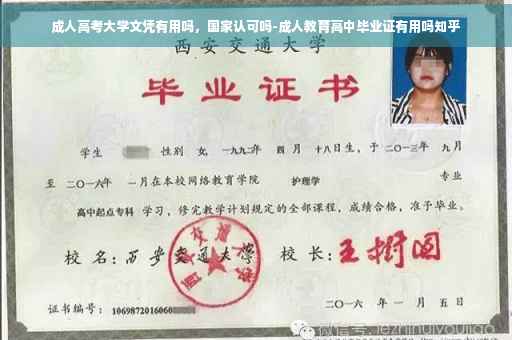 成人高考大学文凭有用吗，国家认可吗-成人教育高中毕业证有用吗知乎
西安交通大学
毕业证书
学生 性别 女，一九九二年 四月 十八日生，于二〇一三年 九月
至 二〇一六年 一月在本校网络教育学院 护理学 专业
高中起点专科 学习，修完教学计划规定的全部课程，成绩合格，准予毕业。
校名：西安交通大学 校长：王树国
西安交通大学
证书编号：1069872016060
二〇一六年 一月 五日
微信号:jezhinuiyoujiao